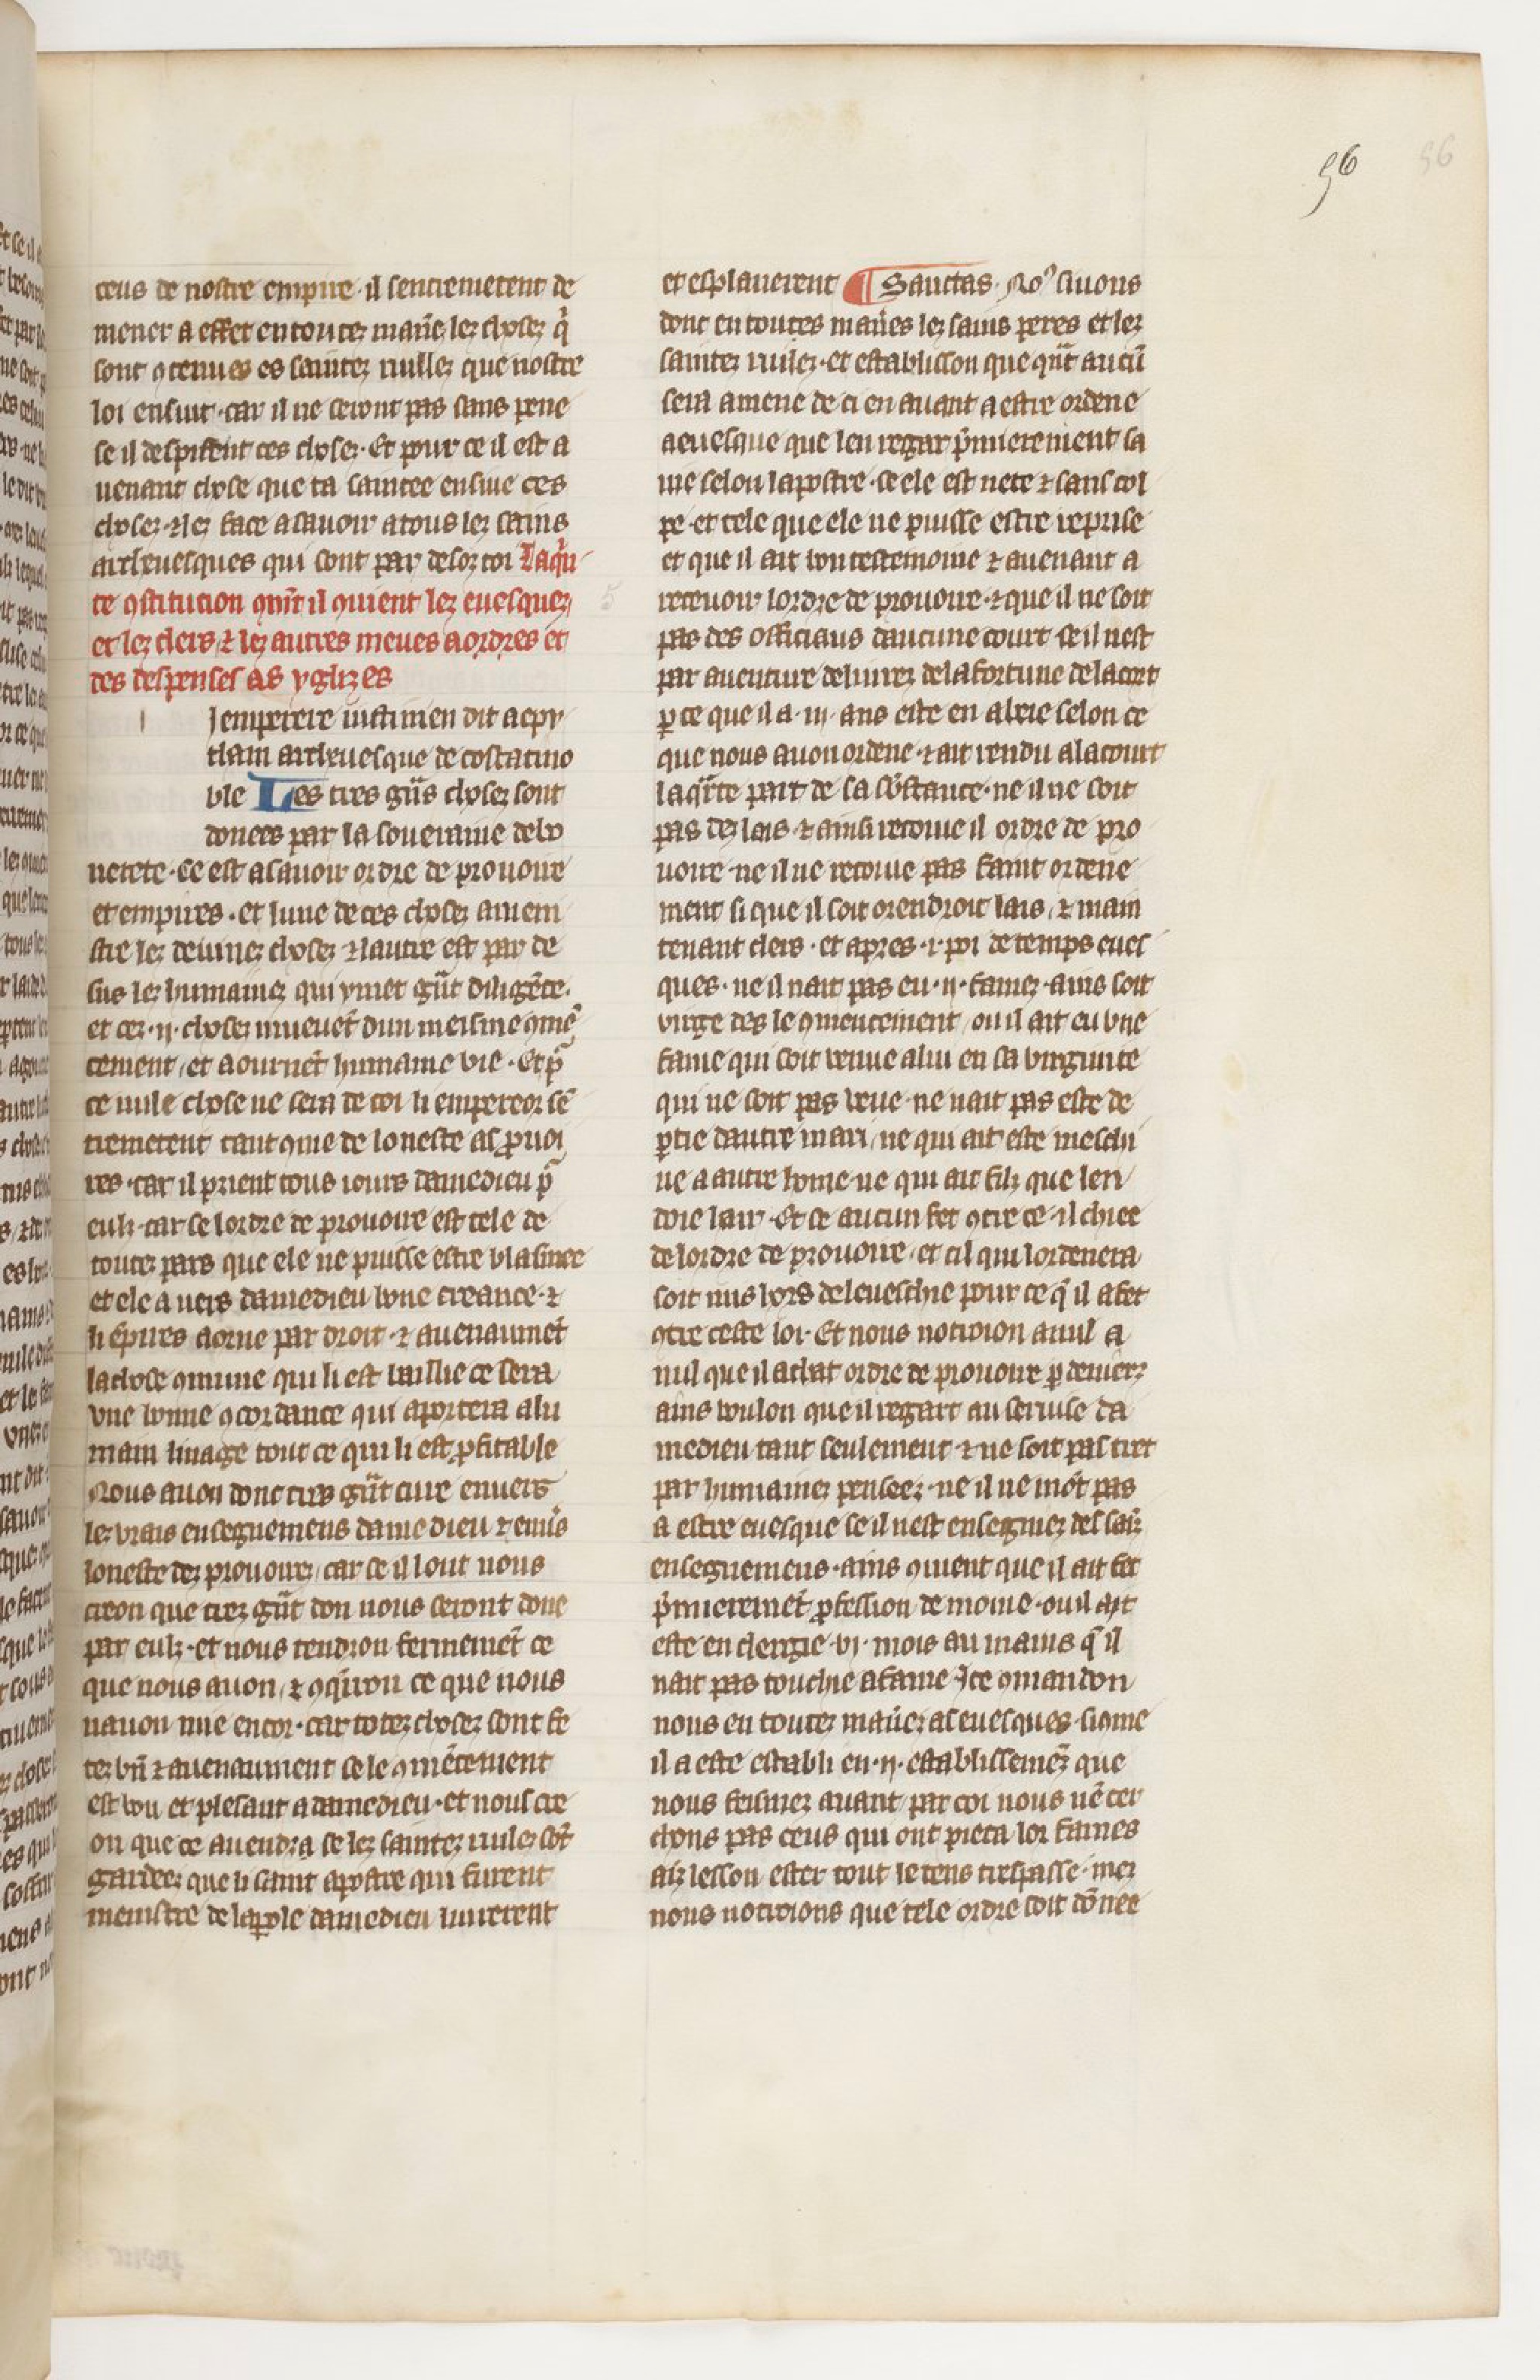 56
56
ceus de nostre empire · il sentremetent de
mener a effet en toutez mañe lez chosez q̃
sont ꝯtenues es saintez riullez que nostre
loi ensuit · car il ne seront pas sans pene
se il despisent ces chosez · Et pour ce il est a
uenant chose que ta saintee ensiue ces
chosez · ⁊ lez face asauoir a tous lez sains
archeuesques qui sont par desoz toi La q̃r
te ꝯstitution ꝯm̃t il ꝯuient lez euesquez
et lez clers ⁊ lez autres meues a ordres et
des despenses as yglizes
l
J emperere iustinien dit a epy
tham archeuesque de costatino
ble Les tres gñs chosez sont
donees par la soueraine debo
nerete · Ce est asauoir ordre de prouoire
et empires · et lune de ces chosez ameni
stre lez deuinez chosez ⁊ lautre est par de
sus lez humainez qui ymet gñt diligẽce ·
et cez · ij · chosez mueuẽt dun meisme ꝯmẽ
cement / et aournẽt humaine vie · Et p̃
ce nule chose ne sera de coi li empereor sẽ
tremetent tant ꝯme de loneste as ꝓuoi
res · car il prient tous iours damedieu p̃
eulz · car se lordre de prouoire est tele de
toutez pars que ele ne puisse estre blasmee
et ele a uers damedieu bone creance · ⁊
li ẽpires aorne par droit · ⁊ auenaumẽt
la chose ꝯmune qui li est baillie ce sera
vne bonne ꝯcordance qui aportera alu
main linage tout ce qui li est ꝓfitable
Nous auon dont tres gñt cure enuers
lez vrais enseignemens damedieu ⁊ enũs
loneste dez prouoires / car se il lont nous
creon que trez gñt don nous seront done
par eulz · et nous tendron fermemẽt ce
que nous auon / ⁊ ꝯq̃rron ce que nous
nauon mie encor · car totez chosez sont fe
tez bñ ⁊ auenaument se le ꝯmẽcement
est bon et plesant a damedieu · et nous cre
on que ce auendra se lez saintez riulez sõt
gardeez que li saint apostre qui furent
menistre de la ꝑole damedieu liurerent
et esplanerent ¶ Sanctas · Noꝰ siuons
dont en toutes mañes lez sains peres et lez
saintez riulez · et establisson que qñt aucũ
sera amene de ci en auant a estre ordene
a euesque que len regart p̃mierement sa
uie selon lapostre · se ele est nete ⁊ sans col
pe · et tele que ele ne puisse estre reprise
et que il ait bon testemoine ⁊ auenant a
receuoir lordre de prouoire · ⁊ que il ne soit
pas des officiaus daucune court · se il nest
par auenture deliurez de la fortune de la cort
p ce que il a · iij · ans este en abeie selon ce
que nous auon ordene · ⁊ ait rendu a la court
la q̃rte part de sa sb̃stance · ne il ne soit
pas dez lais · ⁊ ainsi recoiue il ordre de pro
uoire · ne il ne recoiue pas faint ordene
ment si que il soit orendroit lais / ⁊ main
tenant clers · et apres · i · poi de temps eues
ques · ne il nait pas eu · ij · famez · ains soit
virge des le ꝯmencement / ou il ait eu vne
fame qui soit venue a lui en sa virginite
qui ne soit pas veue · ne nait pas este de
ꝑtie dautre mari / ne qui ait este meschi
ne a autre home · ne qui ait filz que len
doie lair · Et se aucun fet ꝯtre ce · il chiee
de lordre de prouoire · et cil qui lordenera
soit mis hors de leueschie pour ce q̃ il a fet
ꝯtre ceste loi · Et nous notroion a nul a
nul que il achat ordre de prouoire ꝑ denierz
ains voulon que il regart au seruise da
medieu tant seulement · ⁊ ne soit pas tret
par humainez penseez · ne il ne mõt pas
a estre euesque se il nest enseigniez des saĩz
enseignemens · ains ꝯuient que il ait fet
p̃mieremẽt ꝓfession de moine · ou il ait
este en clergie · vi · mois au mains q̃ il
nait pas touchie a fame Ice ꝯmandon
nous en toutez mañez as euesques · si ꝯme
il a este establi en · ij · establissemẽz que
nous feismez auant par coi nous nẽcer
chons pas ceus qui ont pieca lor fames
aiz lesson ester tout le tens trespasse · mez
nous notroions que tele ordre soit dõnee